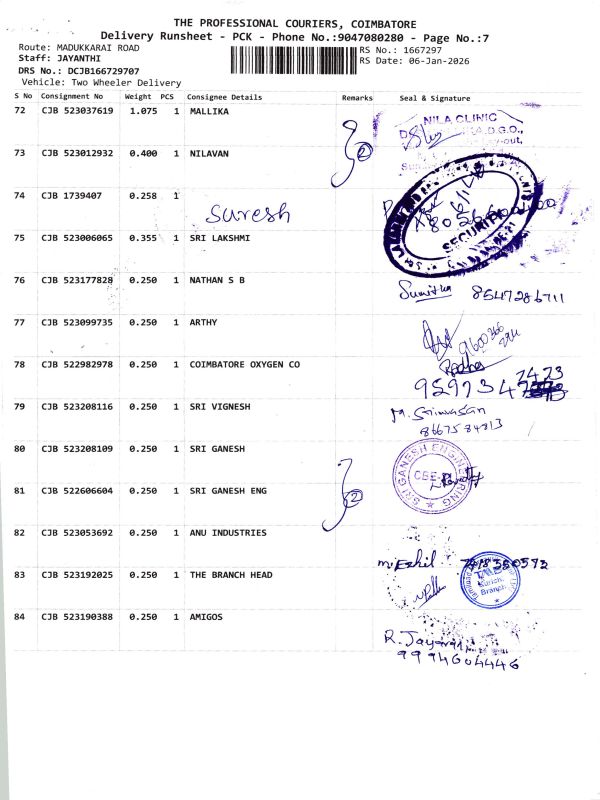 THE PROFESSIONAL COURIERS, COIMBATORE
Delivery Runsheet - PCK - Phone No.:9047080280 - Page No.:7
Route: MADUKKARAI ROAD
RS No.: 1667297
Staff: JAYANTHI
RS Date: 06-Jan-2026
DRS No.: DCJB166729707
Vehicle: Two Wheeler Delivery
S No Consignment No Weight PCS Consignee Details Remarks Seal & Signature
72 CJB 523037619 1.075 1 MALLIKA
NILA CLINIC
73 CJB 523012932 0.400 1 NILAVAN
2
74 CJB 1739407 0.258 1
Suresh
SECURITY
75 CJB 523006065 0.355 1 SRI LAKSHMI
76 CJB 523177828 0.250 1 NATHAN S B
Sumitha 8647286711
77 CJB 523099735 0.250 1 ARTHY
78 CJB 522982978 0.250 1 COIMBATORE OXYGEN CO
Radha
7473
959734
79 CJB 523208116 0.250 1 SRI VIGNESH
M. Srinivasan
8667584813
80 CJB 523208109 0.250 1 SRI GANESH
SRI GANESH ENGINEERING
CBE
81 CJB 522606604 0.250 1 SRI GANESH ENG
2
82 CJB 523053692 0.250 1 ANU INDUSTRIES
m. Ezhil 7418350592
83 CJB 523192025 0.250 1 THE BRANCH HEAD
TMB
Kurichi
Branch
84 CJB 523190388 0.250 1 AMIGOS
9994604446